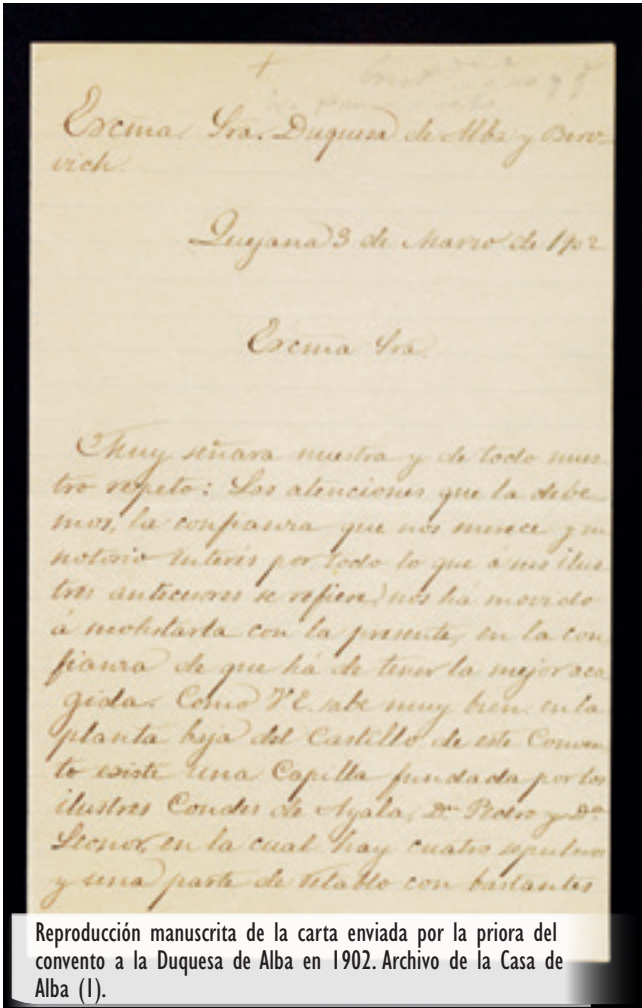 +
Excma. Sra. Duquesa de Alba y Berw-
rich.
Quejana 3 de Marzo de 1902
Excma Sra.
Muy señora nuestra y de todo nues-
tro repeto: Las atenciones que la debe-
mos, la confianza que nos merece y su
notorio interés por todo lo que á sus ilus-
tres antecesores se refiere, nos há movido
á molestarla con la presente, en la con
fianza de que há de tener la mejor aco
gida. Como V.E. sabe muy bien en la
planta baja del Castillo de este Conven
to existe una Capilla fundada por los
ilustres Condes de Ayala, Dn. Pedro y Da.
Leonor, en la cual hay cuatro sepulcros
y una parte de retablo con bastantes
Reproducción manuscrita de la carta enviada por la priora del
convento a la Duquesa de Alba en 1902. Archivo de la Casa de
Alba (1).